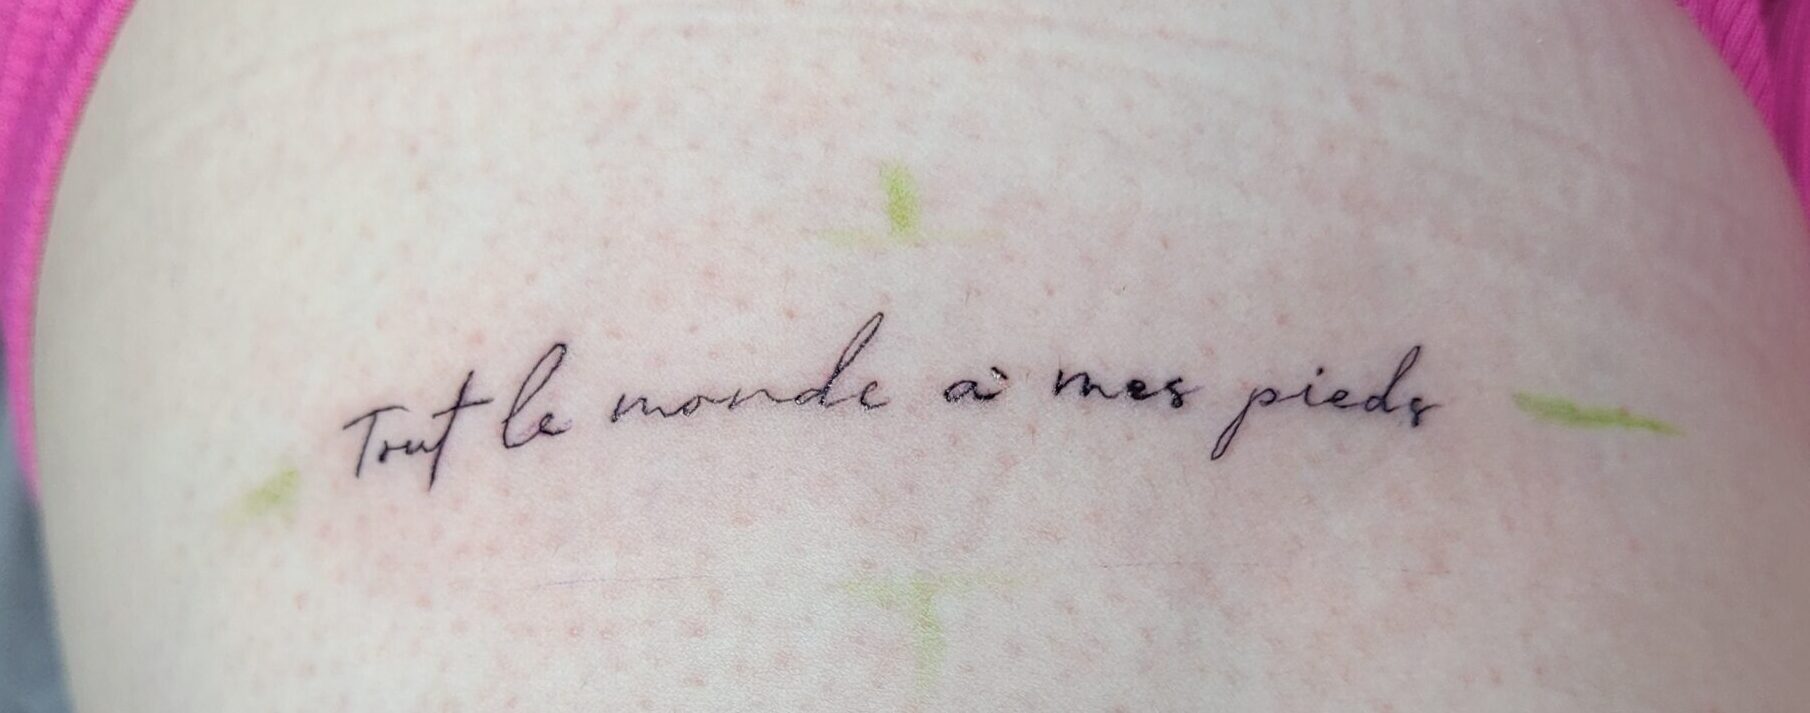 Tout le monde à mes pieds